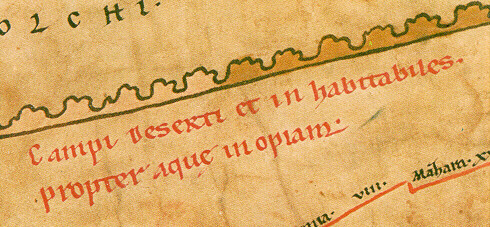 OLCHI.
Campi Deserti et in habitabiles.
propter aque in opiam.
viii. Mahara. x